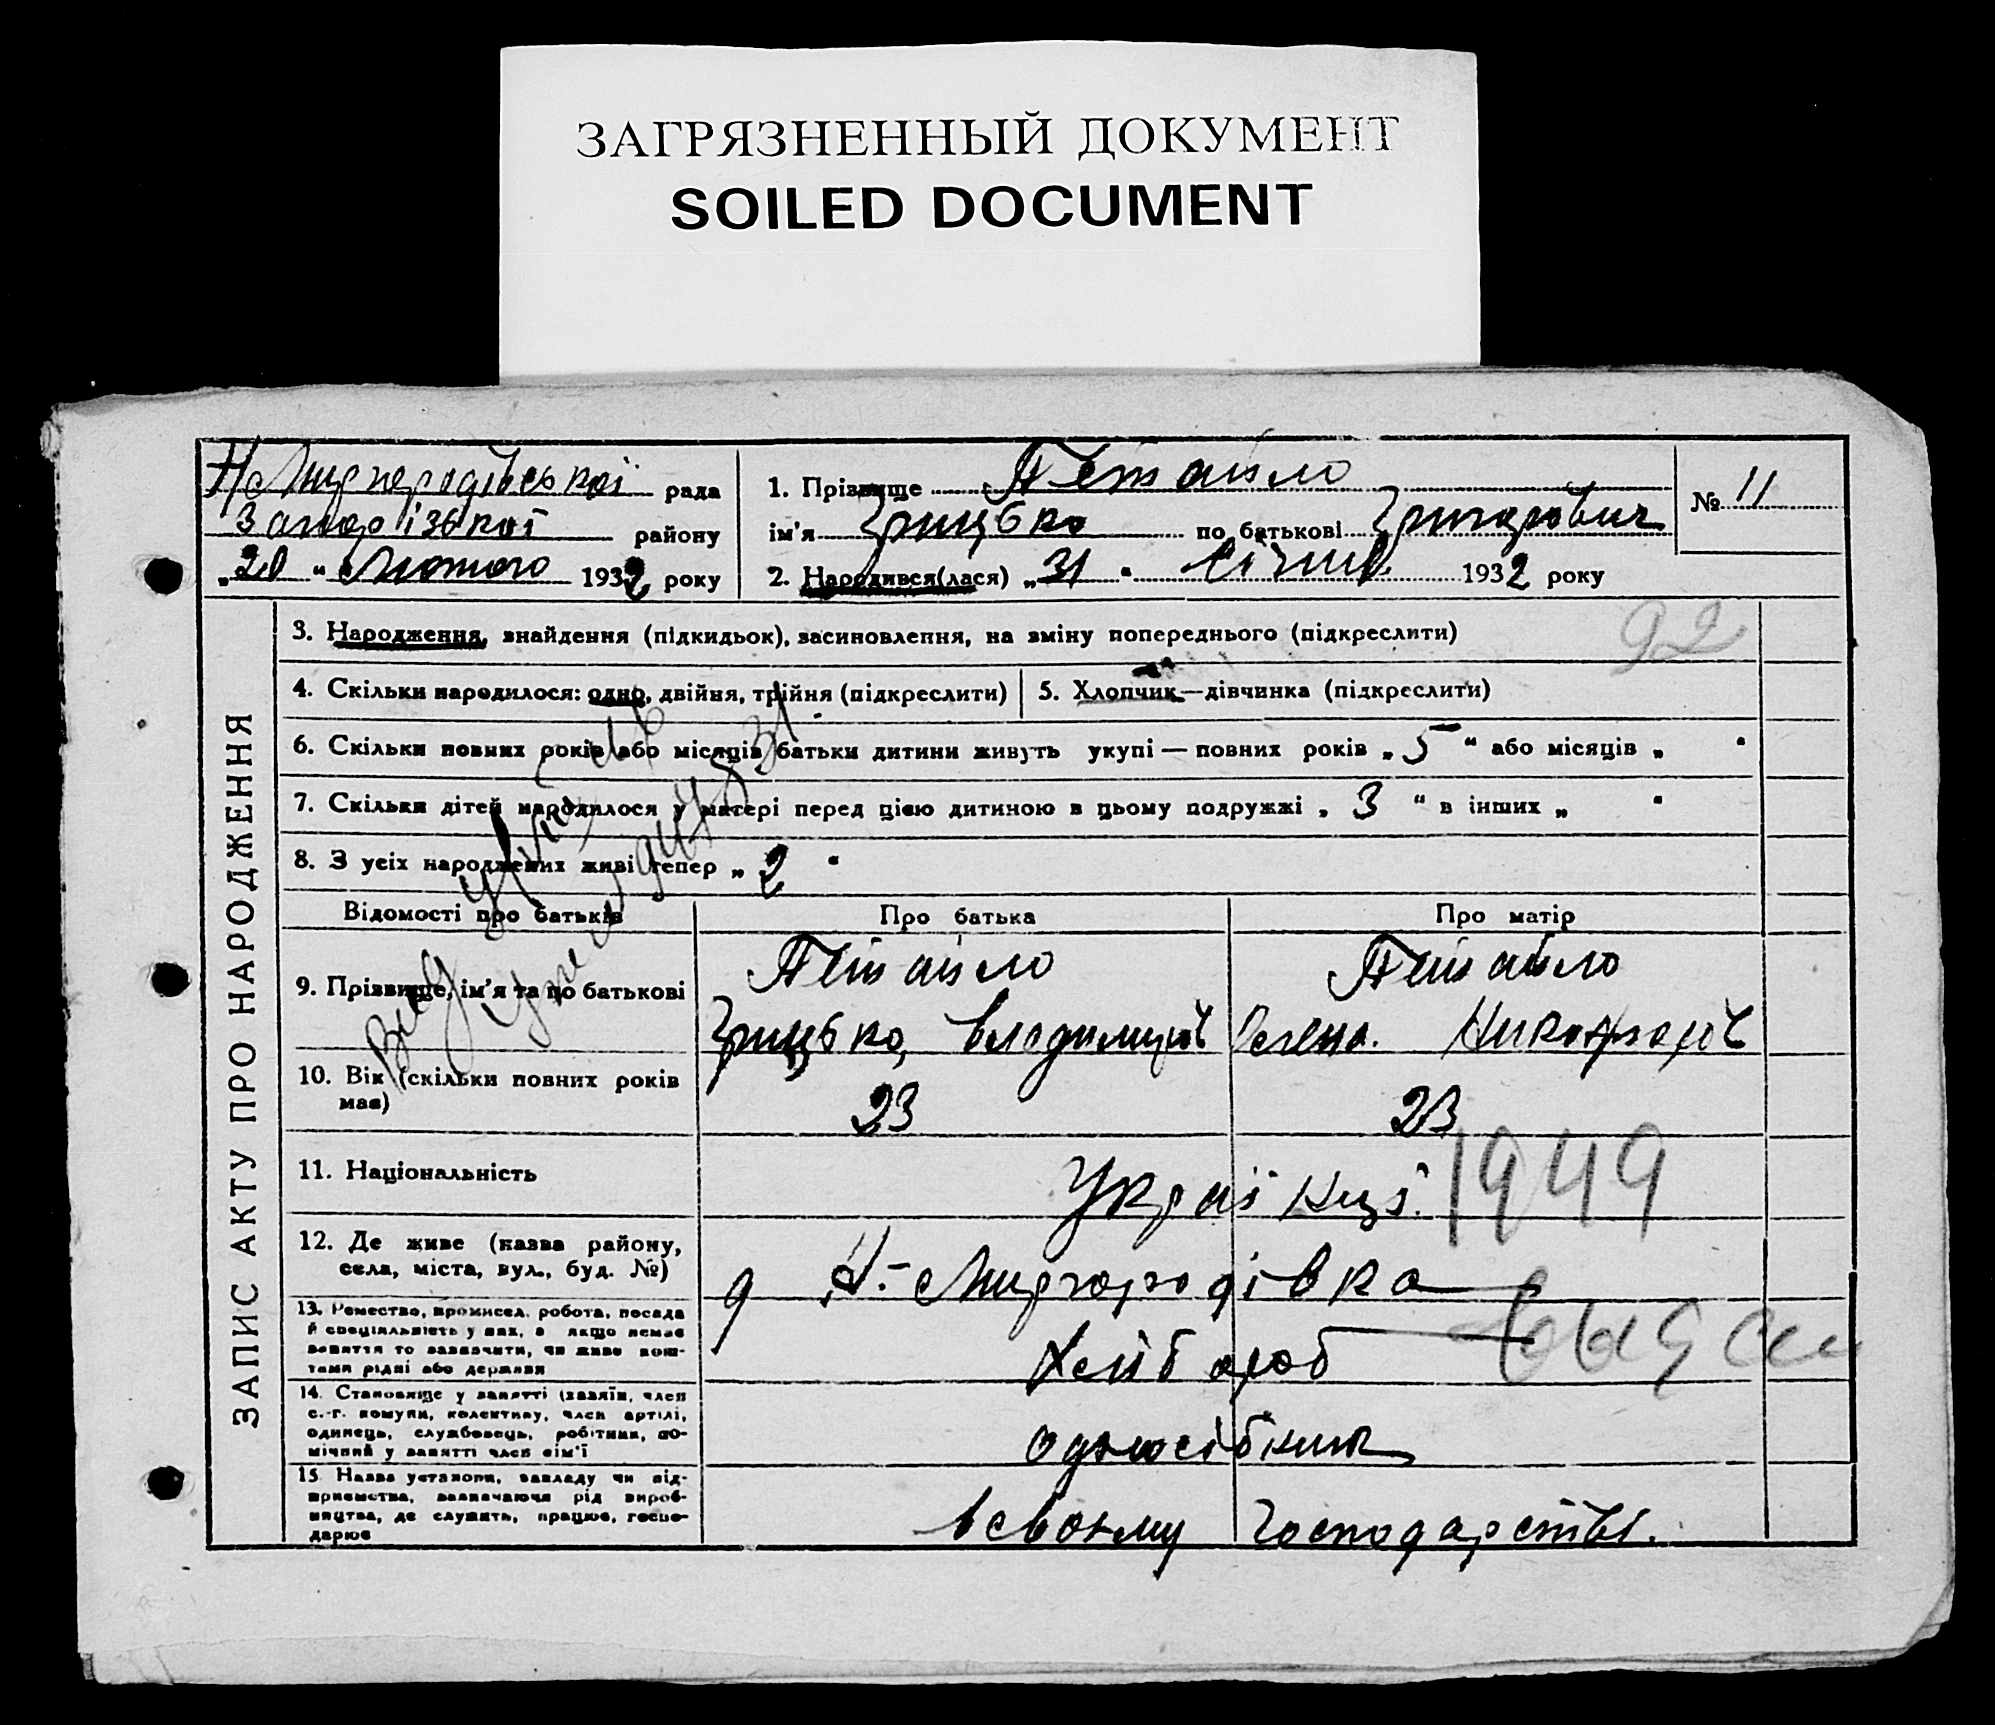 ЗАГРЯЗНЕННЫЙ ДОКУМЕНТ
SOILED DOCUMENT
Н Миргородівської рада
Запорізької району
„20“ Лютого 1932 року
1. Прізвище Петайло
ім'я Грицько по батькові Григорович
2. Народився(лася) „31“ Січня 1932 року
№ 11
ЗАПИС АКТУ ПРО НАРОДЖЕННЯ
3. Народження, знайдення (підкидьок), засиновлення, на зміну попереднього (підкреслити)
92
4. Скільки народилося: одно, двійня, трійня (підкреслити)
5. Хлопчик—дівчинка (підкреслити)
6. Скільки повних років або місяців батьки дитини живуть укупі — повних років „5“ або місяців „ “
7. Скільки дітей народилося у матері перед цією дитиною в цьому подружжі „3“ в інших „ “
8. З усіх народжених живі тепер „2“
Відомості про батьків
Про батька
Про матір
9. Прізвище, ім'я та по батькові
Петайло
Грицько, Владимиров
Петайло
Олена. Никанфоров
10. Вік (скільки повних років має)
23
23
11. Національність
Українці.
1949
12. Де живе (назва району, села, міста, вул., буд. №)
Н.-Миргородівка
13. Ремество, промисел, робота, посада й спеціяльність у них, а якщо немає заняття то зазначити, чи живе коштами рідні або держави
Хлібороб
14. Становище у занятті (хазяїн, член с.-г. комуни, колективу, член артілі, одинець, службовець, робітник, помічний у занятті член сім'ї
одноосібник
15. Назва установи, закладу чи підприємства, зазначаючи рід виробництва, де служить, працює, господарює
в своєму господарстві.